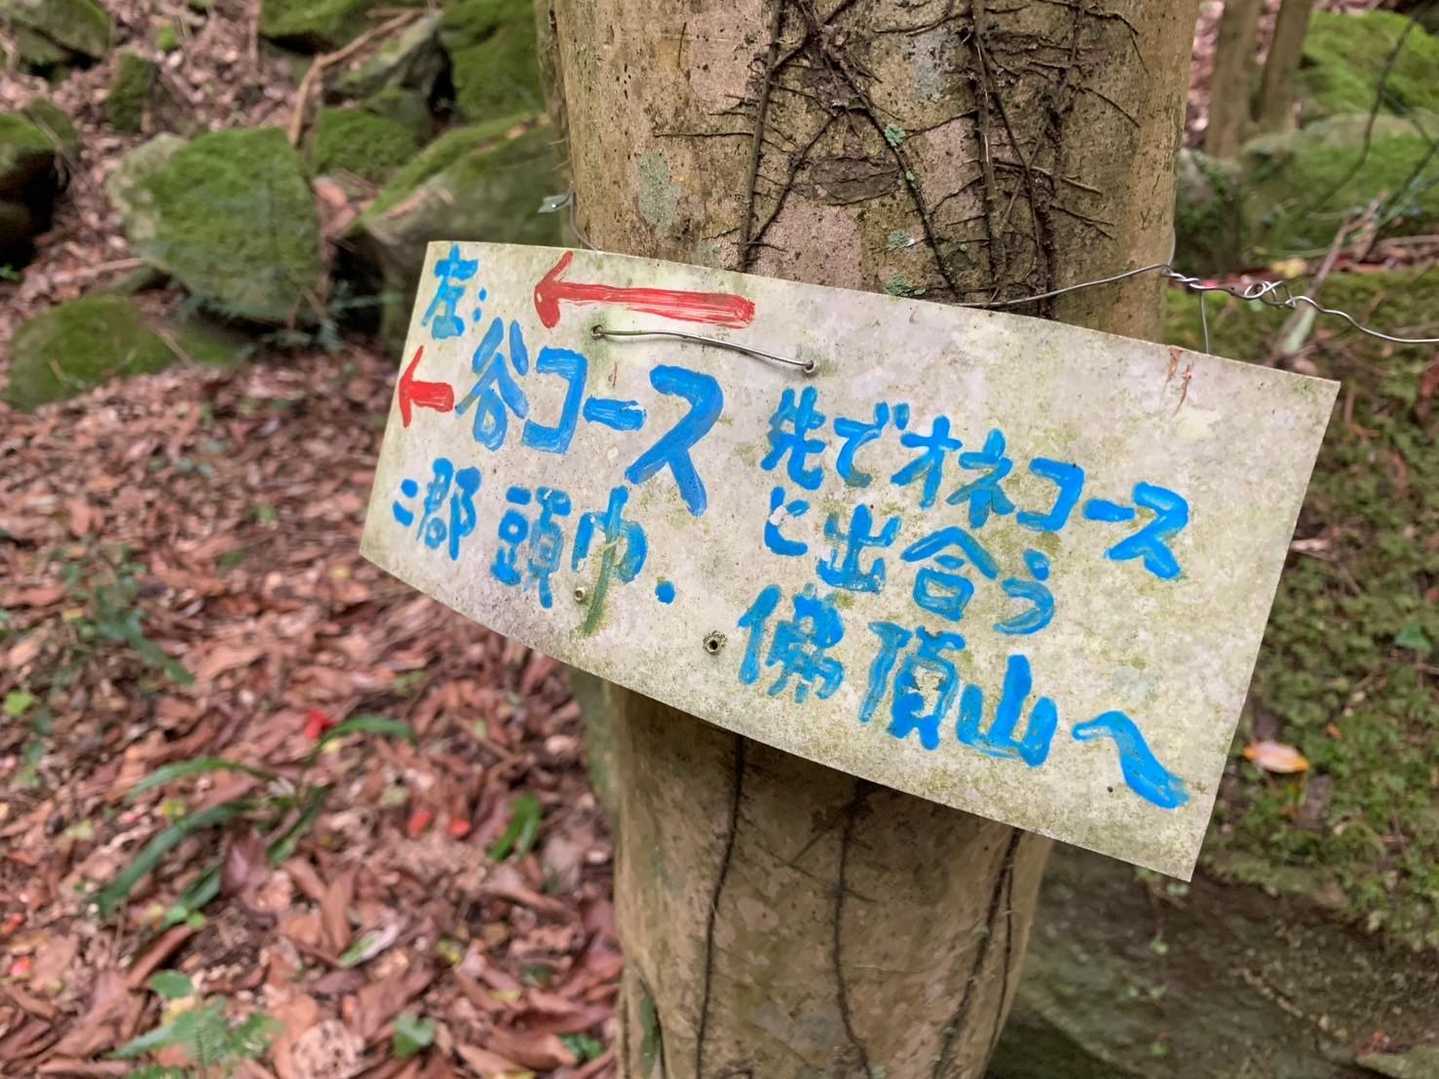 左:
谷コース
:郡頭巾.
先でオネコース
と出合う
佛頂山へ